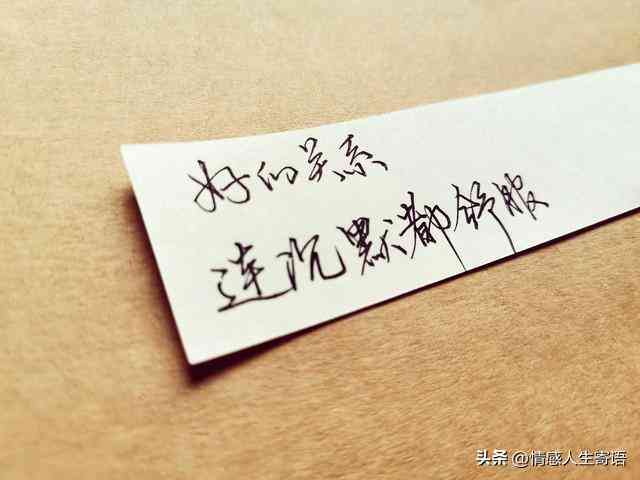 好的关系
连沉默都舒服
头条 @情感人生寄语